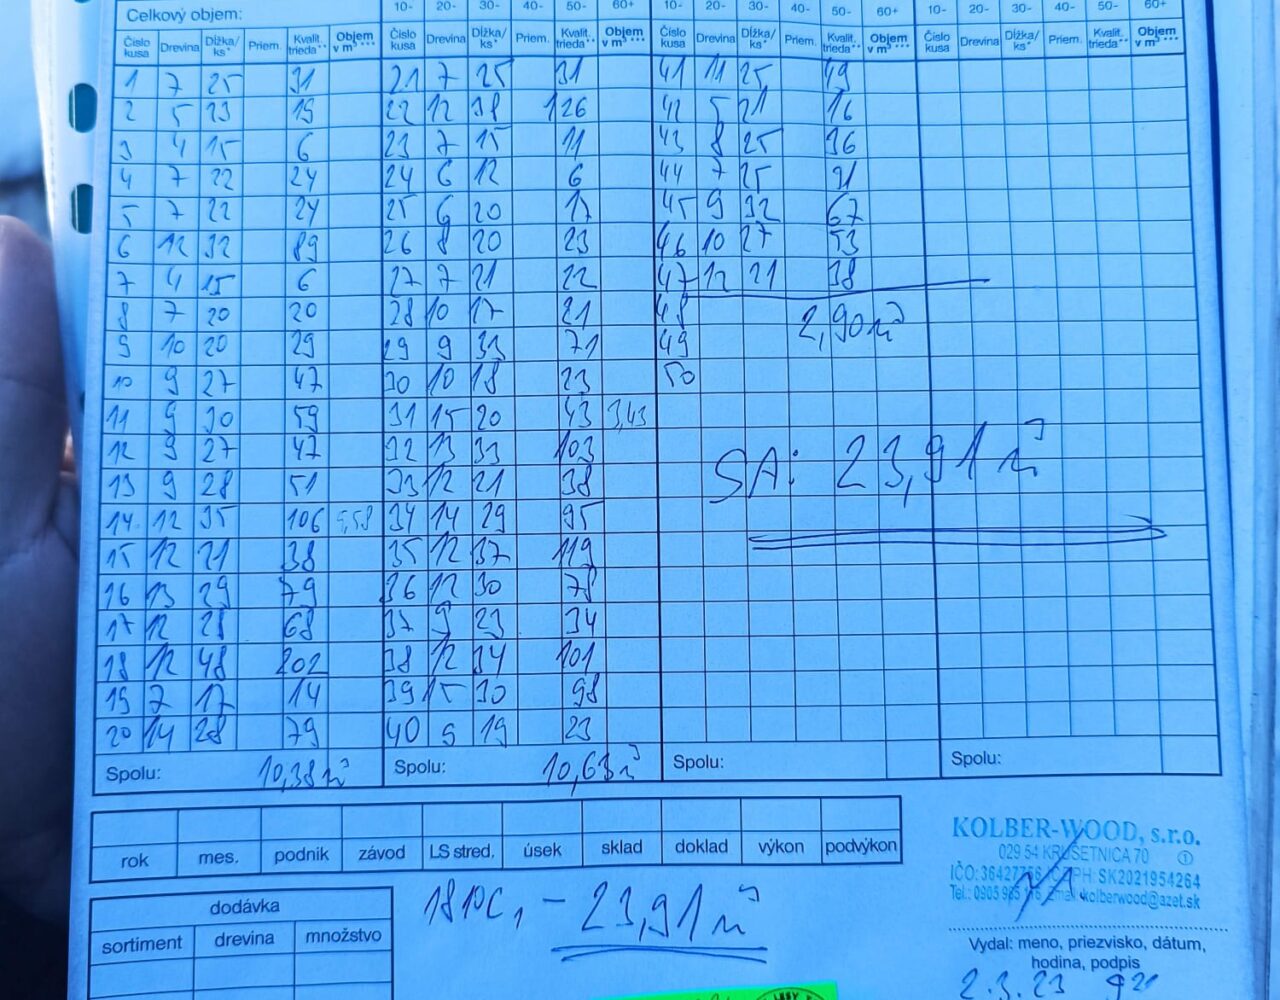 Celkový objem: 10- 20- 30- 40- 50- 60+ 10- 20- 30- 40- 50- 60+ 10- 20- 30- 40- 50- 60+
Číslo kusa Drevina Dĺžka/ks* Priem. Kvalit. trieda** Objem v m³*** Číslo kusa Drevina Dĺžka/ks* Priem. Kvalit. trieda** Objem v m³*** Číslo kusa Drevina Dĺžka/ks* Priem. Kvalit. trieda** Objem v m³*** Číslo kusa Drevina Dĺžka/ks* Priem. Kvalit. trieda** Objem v m³***
1 7 25 31 21 7 25 31 41 11 25 49
2 5 23 19 22 12 38 126 42 5 21 16
3 4 15 6 23 7 15 11 43 8 25 36
4 7 22 24 24 6 12 6 44 7 25 31
5 7 22 24 25 6 20 17 45 9 32 67
6 12 32 89 26 8 20 23 46 10 27 53
7 4 15 6 27 7 21 22 47 12 21 38
8 7 20 20 28 10 17 21 48 2,90 m³
9 10 20 29 29 9 33 71 49
10 9 27 47 30 10 18 23 50
11 9 30 59 31 15 20 43 3,43
12 9 27 47 32 13 33 103
13 9 28 51 33 12 21 38 SA: 23,91 m³
14. 12 35 106 5,58 34 14 29 95
15 12 21 38 35 12 37 119
16 13 29 79 36 12 30 78
17 12 28 68 37 9 23 34
18 12 48 202 38 12 34 101
19 7 17 14 39 15 30 98
20 14 28 79 40 9 19 23
Spolu: 10,38 m³ Spolu: 10,63 m³ Spolu: Spolu:
rok mes. podnik závod LS stred. úsek sklad doklad výkon podvýkon
KOLBER-WOOD, s.r.o.
029 54 KRUŠETNICA 70
dodávka
sortiment drevina množstvo
23,91 m³
Vydal: meno, priezvisko, dátum,
hodina, podpis
2.3.23